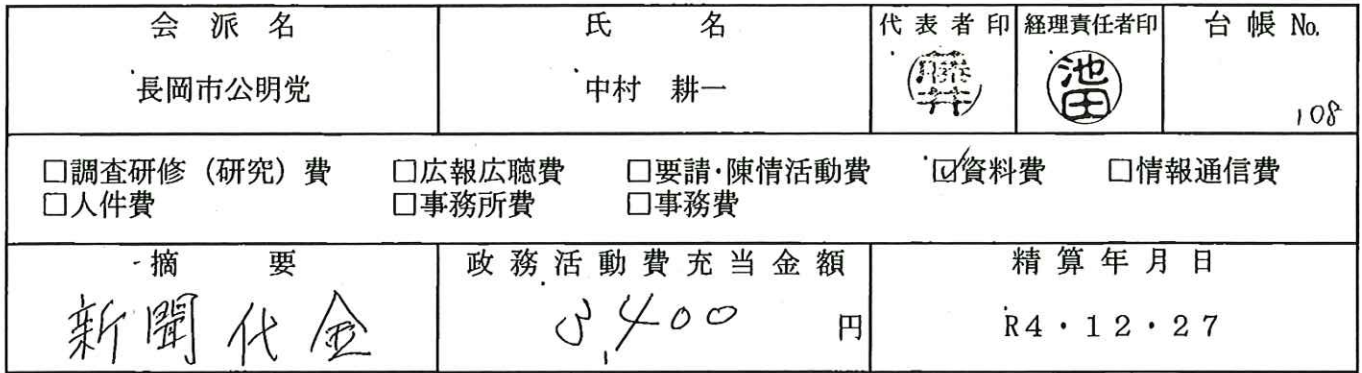 会派名 氏名 代表者印 経理責任者印 台帳No.
長岡市公明党 中村 耕一 池田 108
□調査研修（研究）費 □広報広聴費 □要請・陳情活動費 ☑資料費 □情報通信費
□人件費 □事務所費 □事務費
摘要 政務活動費充当金額 精算年月日
新聞代金 3,400 円 R4・12・27